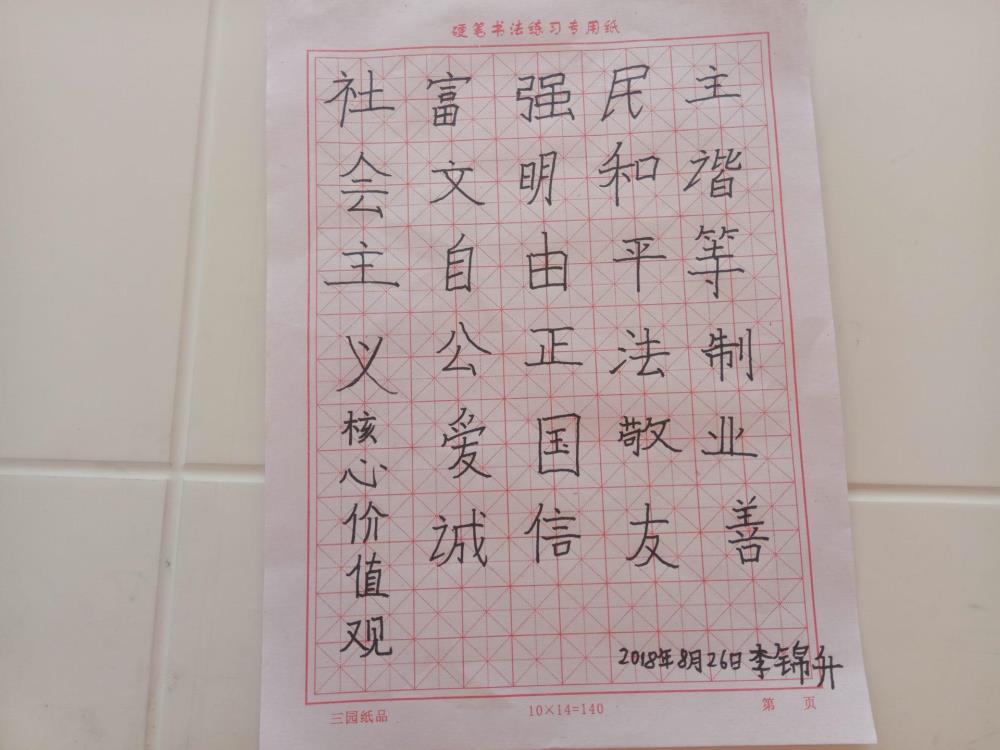 硬笔书法练习专用纸
社会主义核心价值观
富强民主
文明和谐
自由平等
公正法制
爱国敬业
诚信友善
2018年8月26日李锦升
三园纸品
10×14=140
第 页